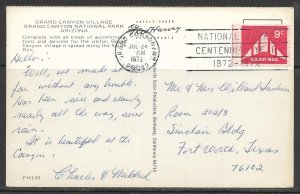 GRAND CANYON VILLAGE
GRAND CANYON NATIONAL PARK
ARIZONA
Complete with all kinds of accommodations
and services for the visitor, Grand
Canyon Village is spread along the
Fred Harvey
JUL 24
AM
1972
86023
NATIONAL
CENTENNIAL
1872-1972
9c
U.S. AIR MAIL
Hello:-
Well, we made it so
far without any trouble.
Has been nice and cloudy
nearly all the way, some
rain.
It is beautiful at the
Canyon.
Charles & Mildred
Mr & Mrs Willard
Room 203/3
Sinclair Bldg
Fort Worth, Texas
76102
PH243